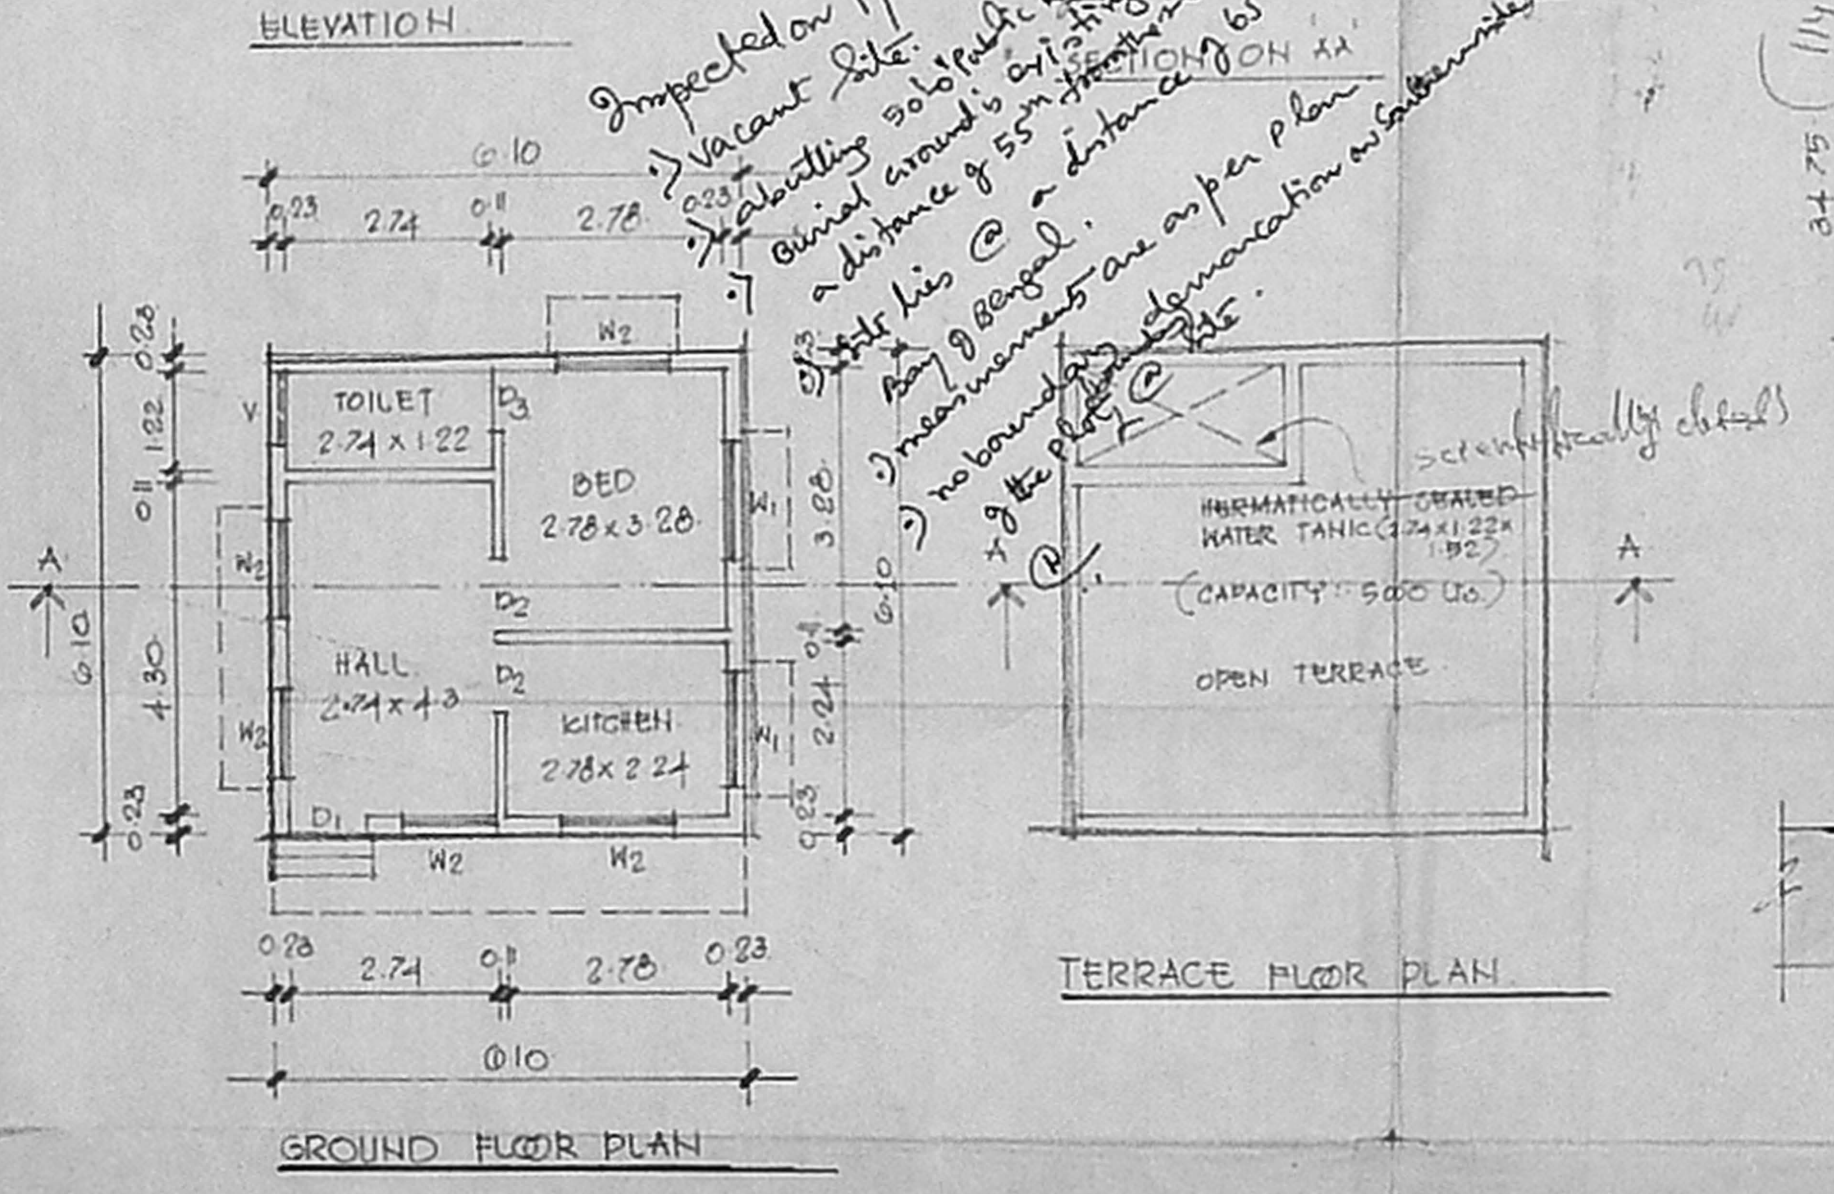 ELEVATION
SECTION ON AA
Inspected on
·) Vacant Site.
·) abutting 50'0" public
·) Burial Ground is existing
a distance of 55m from the
·) Site lies @ a distance of 65
Bay of Bengal.
·) measurements are as per plan
·) no boundary demarcation on Southern side
of the plot boundary @ site.
114
34 75
6.10
0.23 2.74 0.11 2.78 0.23
W2
0.23
1.22
0.11
4.30
0.23
6.10
V
TOILET
2.74 x 1.22
D3
BED
2.78 x 3.28
W1
W2
A
D2
HALL
2.74 x 4.3
D2
W2
KITCHEN
2.78 x 2.24
W1
D1
W2 W2
0.23
3.28
0.11
2.24
0.23
6.10
0.23 2.74 0.11 2.78 0.23
6.10
GROUND FLOOR PLAN
scientifically closed
HERMATICALLY SEALED
WATER TANK (2.74x1.22x
1.52)
(CAPACITY :- 5000 Lts.)
A A
OPEN TERRACE
TERRACE FLOOR PLAN